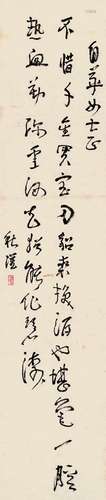 自華女士正
不惜千金買宝刀貂裘換酒也堪豪一腔
熱血勤珍重洒去猶能化碧濤
秋瑾